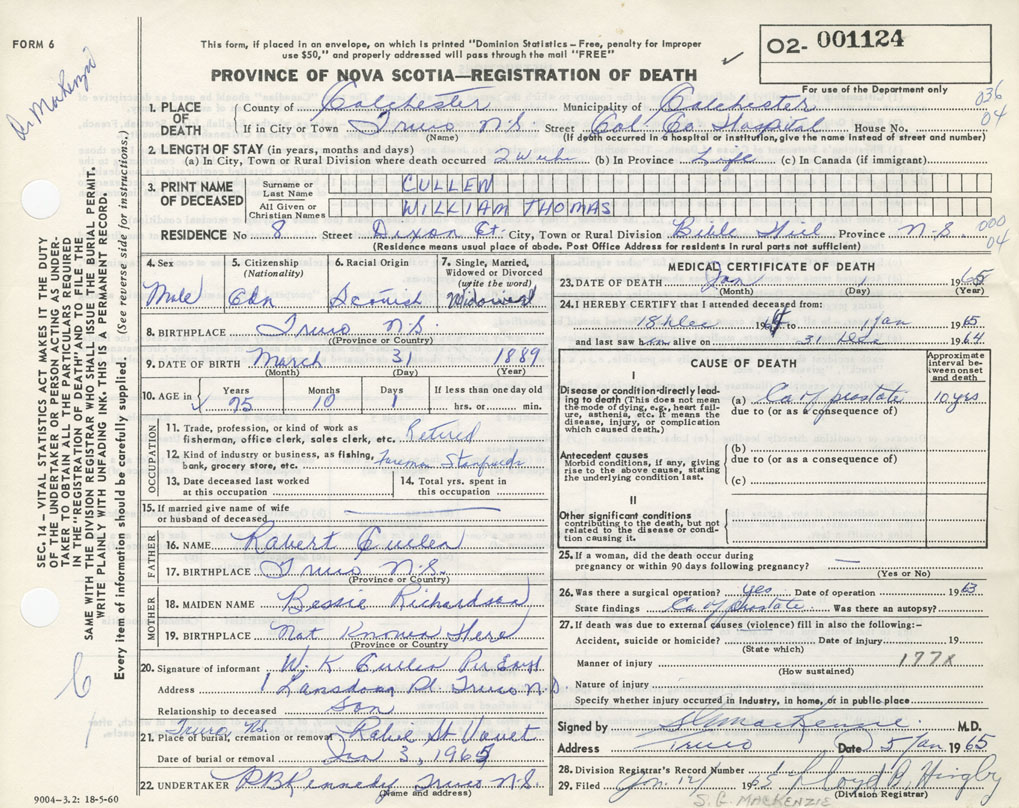 FORM 6
Dr MacKenzie
This form, if placed in an envelope, on which is printed "Dominion Statistics – Free, penalty for improper
use $50," and properly addressed will pass through the mail "FREE"
O2- 001124
PROVINCE OF NOVA SCOTIA—REGISTRATION OF DEATH
For use of the Department only
036
04
1. PLACE OF DEATH County of Colchester Municipality of Colchester
If in City or Town Truro N.S. Street Col. Co Hospital House No.
(Name) (If death occurred in a hospital or institution, give the name instead of street and number)
2. LENGTH OF STAY (in years, months and days)
(a) In City, Town or Rural Division where death occurred 2 wks (b) In Province Life (c) In Canada (if immigrant)
3. PRINT NAME OF DECEASED
Surname or Last Name CULLEN
All Given or Christian Names WILLIAM THOMAS
RESIDENCE No 8 Street Dixon Ct. City, Town or Rural Division Bible Hill Province N.S.
000
04
(Residence means usual place of abode. Post Office Address for residents in rural parts not sufficient)
4. Sex Male
5. Citizenship (Nationality) Cdn
6. Racial Origin Scottish
7. Single, Married, Widowed or Divorced (write the word) Widowed
8. BIRTHPLACE Truro N.S.
(Province or Country)
9. DATE OF BIRTH March 31 1889
(Month) (Day) (Year)
10. AGE in Years 75 Months 10 Days 1 If less than one day old
hrs. or min.
OCCUPATION
11. Trade, profession, or kind of work as
fisherman, office clerk, sales clerk, etc. Retired
12. Kind of industry or business, as fishing,
bank, grocery store, etc. Foreman Stanfields
13. Date deceased last worked
at this occupation
14. Total yrs. spent in
this occupation
15. If married give name of wife
or husband of deceased
FATHER
16. NAME Robert Cullen
17. BIRTHPLACE Truro N.S.
(Province or Country)
MOTHER
18. MAIDEN NAME Bessie Richardson
19. BIRTHPLACE Not Known Here
(Province or Country)
20. Signature of informant W. K Cullen Per
Address 1 Pl. Truro N.S
Relationship to deceased Son
21. Place of burial, cremation or removal Truro NS. Robie St Vault
Date of burial or removal Jan 3, 1965
22. UNDERTAKER P.B Kennedy Truro N.S.
(Name and address)
9004–3.2: 18-5-60
MEDICAL CERTIFICATE OF DEATH
23. DATE OF DEATH Jan 1 1965
(Month) (Day) (Year)
24. I HEREBY CERTIFY that I attended deceased from:
18 Dec 1964 to 1 Jan 1965
and last saw him alive on 31 Dec 1964
CAUSE OF DEATH
Approximate
interval be-
tween onset
and death
I
Disease or condition directly lead-
ing to death (This does not mean
the mode of dying, e.g., heart failure,
asthenia, etc. It means the
disease, injury, or complication
which caused death.)
(a) Ca of prostate 10 yrs
due to (or as a consequence of)
Antecedent causes
Morbid conditions, if any, giving
rise to the above cause, stating
the underlying condition last.
(b)
due to (or as a consequence of)
(c)
II
Other significant conditions
contributing to the death, but not
related to the disease or condi-
tion causing it.
25. If a woman, did the death occur during
pregnancy or within 90 days following pregnancy? —
(Yes or No)
26. Was there a surgical operation? Yes Date of operation 1963
State findings Ca of prostate Was there an autopsy?
27. If death was due to external causes (violence) fill in also the following:–
Accident, suicide or homicide? Date of injury 19
(State which)
Manner of injury 177X
(How sustained)
Nature of injury
Specify whether injury occurred in Industry, in home, or in public place
Signed by S G MacKenzie M.D.
Address Truro Date 5 Jan 1965
28. Division Registrar's Record Number 1
29. Filed Jan. 12 1965 Lloyd
(Division Registrar)
S. G. MACKENZIE
SEC. 14 – VITAL STATISTICS ACT MAKES IT THE DUTY
OF THE UNDERTAKER OR PERSON ACTING AS UNDER-
TAKER TO OBTAIN ALL THE PARTICULARS REQUIRED
IN THE "REGISTRATION OF DEATH" AND TO FILE THE
SAME WITH THE DIVISION REGISTRAR WHO SHALL ISSUE THE BURIAL PERMIT.
WRITE PLAINLY WITH UNFADING INK. THIS IS A PERMANENT RECORD.
Every item of information should be carefully supplied. (See reverse side for instructions.)